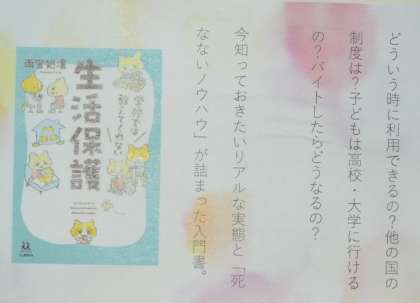 どういう時に利用できるの?他の国の
制度は?子どもは高校・大学に行ける
の?バイトしたらどうなるの?
今知っておきたいリアルな実態と「死
なないノウハウ」が詰まった入門書。
雨宮処凛
学校では
教えてくれない
生活保護